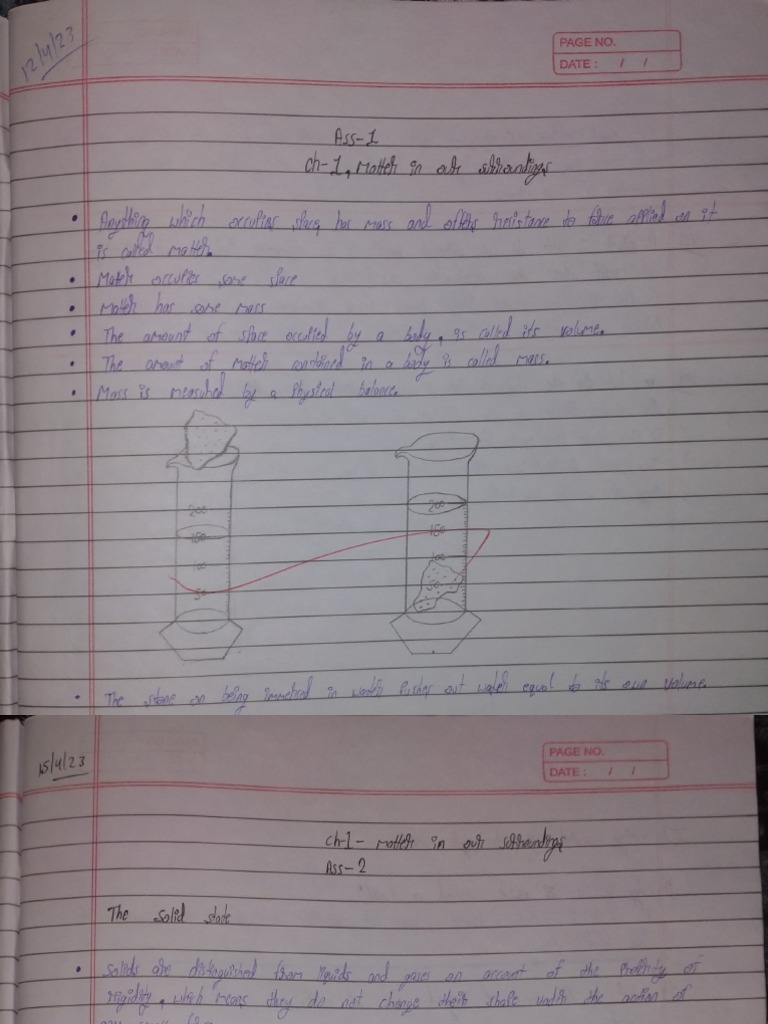 12/4/23
PAGE NO.
DATE : / /
Ass-1
Ch-1, Matter in our surroundings
• Anything which occupies space, has mass and offers resistance to force applied on it
is called matter.
• Matter occupies some space
• Matter has some mass
• The amount of space occupied by a body, is called its volume.
• The amount of matter contained in a body is called mass.
• Mass is measured by a Physical balance.
200 200
150 150
100 100
50 50
• The stone on being immersed in water pushes out water equal to its own volume.
15/4/23
PAGE NO.
DATE : / /
Ch-1- matter in our surroundings
Ass-2
The solid state
• Solids are distinguished from liquids and gases on account of the property of
rigidity, which means they do not change their shape under the action of